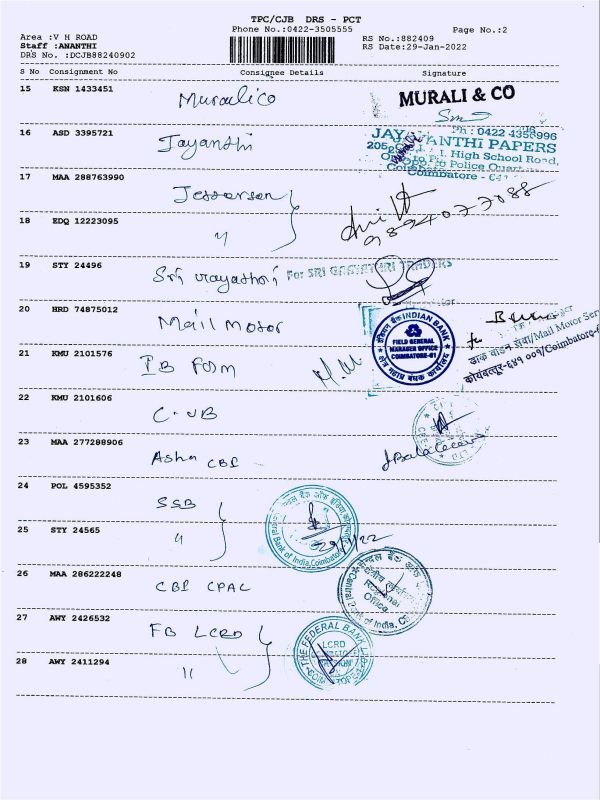 TPC/CJB DRS - PCT
Phone No.:0422-3505555 Page No.:2
Area :V H ROAD RS No.:882409
Staff :ANANTHI RS Date:29-Jan-2022
DRS No. :DCJB88240902
S No Consignment No Consignee Details Signature
15 KSN 1433451 Muralico MURALI & CO
16 ASD 3395721 Jayanthi
Ph : 0422 4358996
JAYANTHI PAPERS
High School Road,
Coimbatore - 641
17 MAA 288763990 Jesserson
18 EDQ 12223095 〃 9894077088
19 STY 24496 Sri For SRI GAYATHRI TRADERS
20 HRD 74875012 Mail Motor
INDIAN BANK
FIELD GENERAL
MANAGER OFFICE
COIMBATORE-01
डाक वाहन सेवा/Mail Motor Ser
कोयंबत्तूर-६४१ ००१/Coimbatore-6
21 KMU 2101576 IB Form
22 KMU 2101606 C-UB
23 MAA 277288906 Asha CBI
24 POL 4595352 SSB
25 STY 24565 〃 29/1/22
Bank of India, Coimbatore
26 MAA 286222248 CBI CPAC
Regional
Office
27 AWY 2426532 FB LCRD
THE FEDERAL BANK
LCRD
28 AWY 2411294 〃